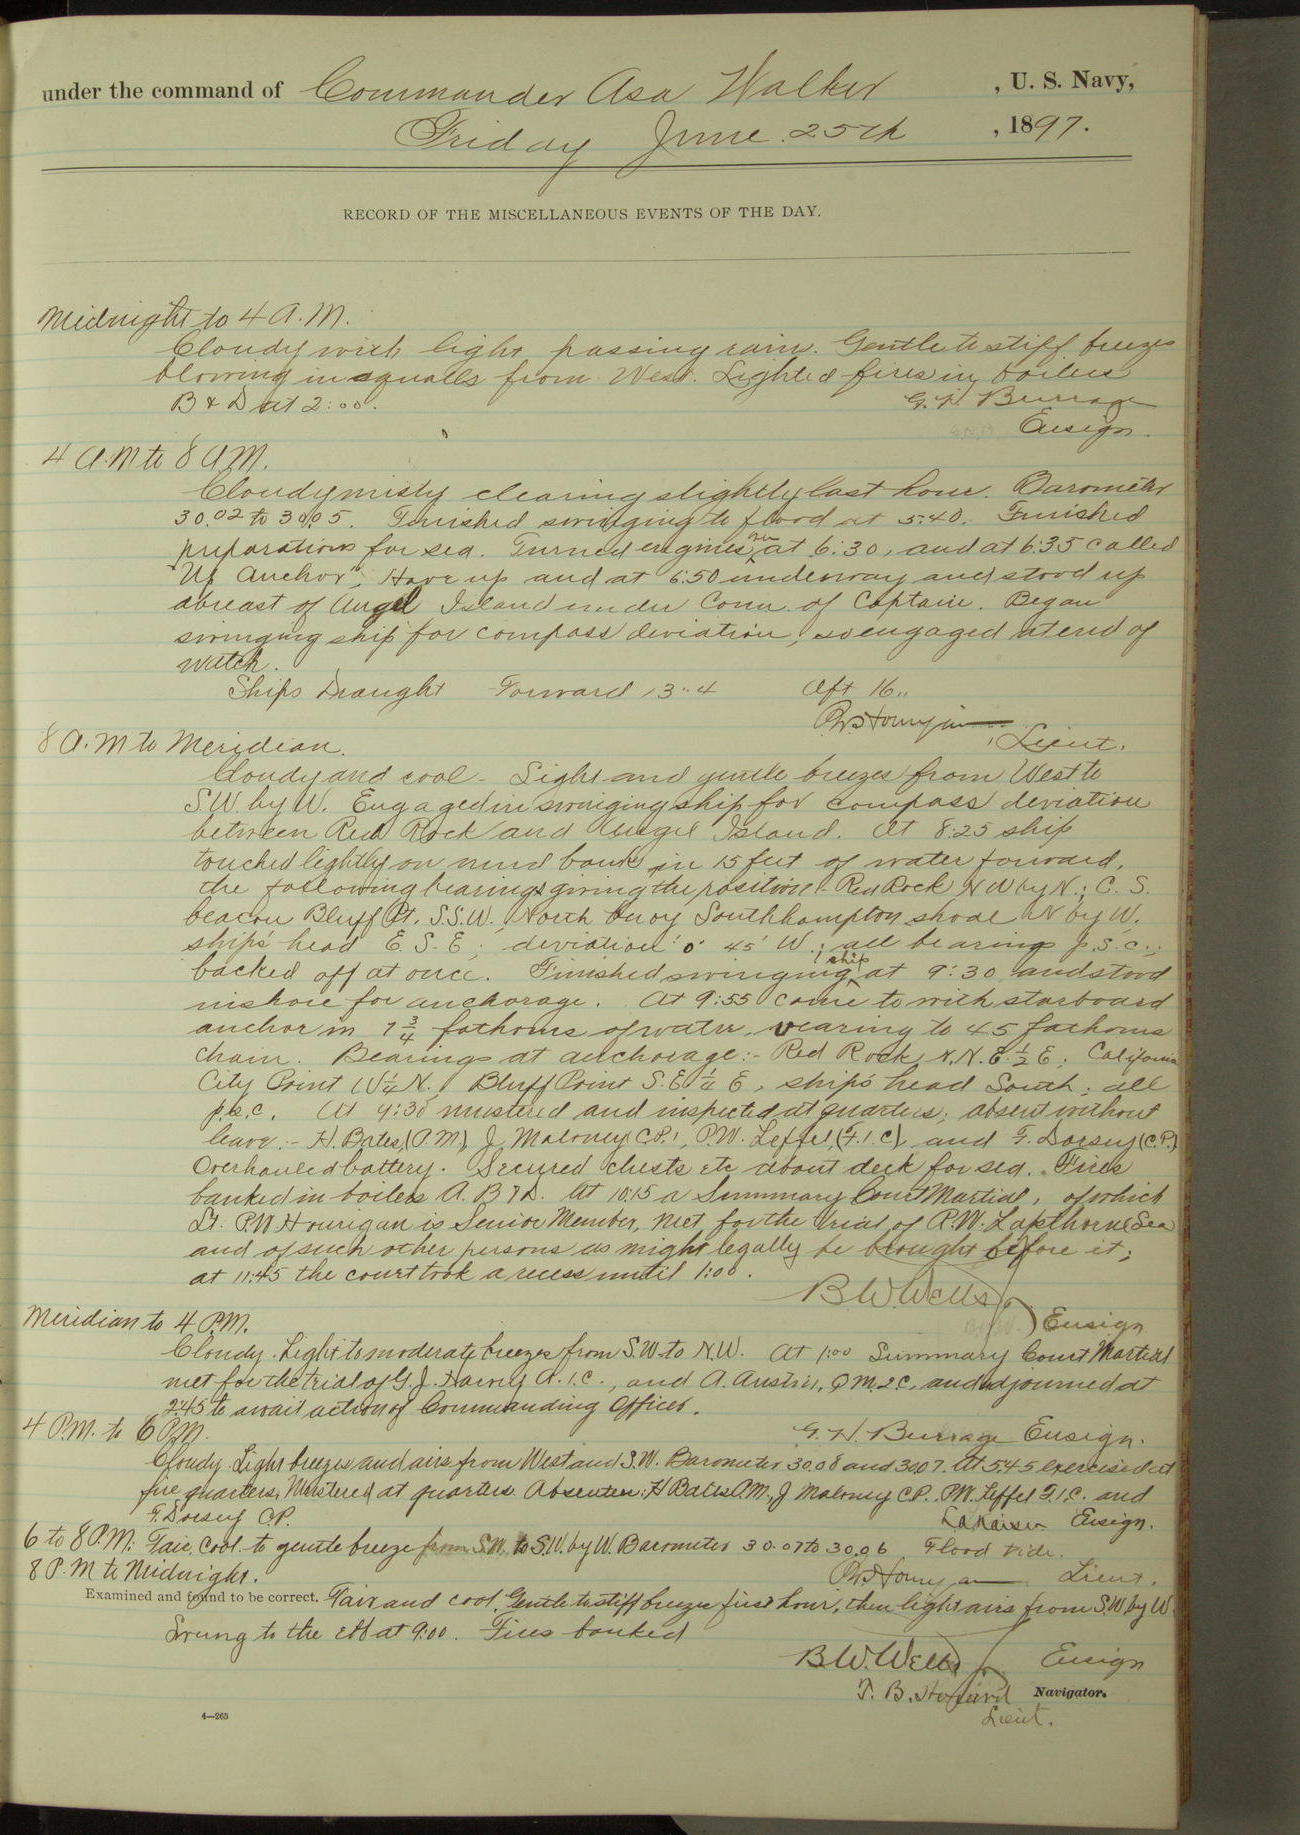 under the command of Commander Asa Walker, U. S. Navy,
Friday June 25th, 1897.
RECORD OF THE MISCELLANEOUS EVENTS OF THE DAY.
Midnight to 4 A.M.
Cloudy with light passing rain. Gentle to stiff breezes
blowing in squalls from West. Lighted fires in boilers
B & D at 2:00. G. N. Burrage
Ensign.
4 A.M to 8 AM.
Cloudy misty clearing slightly last hour. Barometer
30.02 to 30.05. Finished swinging to flood at 5:40. Finished
preparations for sea. Turned engines at 6:30, and at 6:35 called
"Up Anchor", Hove up and at 6:50 underway and stood up
abreast of Angel Island under Conn. of Captain. Began
swinging ship for compass deviation, so engaged at end of
watch.
Ships Draught Forward 13".4 Aft 16"
PW Hourigan
Lieut.
8 A.M to Meridian.
Cloudy and cool - Light and gentle breezes from West to
SW. by W. Engaged in swinging ship for compass deviation
between Red Rock and Angel Island. At 8:25 ship
touched lightly on mud bank in 15 feet of water forward,
the following bearings giving the position:- Red Rock NW by N.; C. S.
beacon Bluff Pt. S.S.W., North buoy Southhampton shoal N by W.
ship's head E. S. E; deviation 0° 45' W.; all bearings p.s.c.;
backed off at once. Finished swinging ship at 9:30 and stood
inshore for anchorage. At 9:55 came to with starboard
anchor in 7 3/4 fathoms of water, vearing to 45 fathoms
chain. Bearings at anchorage:- Red Rock N.N.E. 1/2 E; California
City Point W 1/4 N., Bluff Point S.E 1/4 E, ship's head South; all
p.s.c. At 9:30 mustered and inspected at quarters; absent without
leave:- H. Bates, (O.M.), J Maloney (C.P.), P.W. Leffel, (F.1.C), and F. Dorsey (C.P.)
Overhauled battery. Secured chests etc about deck for sea. Fires
banked in boilers A. B & D. At 10:15 a Summary Court Martial, of which
Lt. P.W Hourigan is Senior Member, met for the trial of R.W. Lapthorne Sea
and of such other persons as might legally be brought before it;
at 11:45 the court took a recess until 1:00.
B. W. Wells Jr
Ensign
Meridian to 4 P.M.
Cloudy. Light to moderate breezes from S.W. to N.W. At 1:00 Summary Court Martial
met for the trial of G. J. A.1.C., and A. Austin, QM2C, and adjourned at
2:45 to await action of Commanding Officer.
4 P.M. to 6 P.M. G. N. Burrage Ensign.
Cloudy. Light breezes and airs from West and S.W. Barometer 30.08 and 30.07. At 5:45 exercised at
fire quarters. Mustered at quarters. Absentees: H Bates O.M., J Maloney CP. P.W. Leffel F.1.C. and
F. Dorsey C.P. LA Kaiser Ensign.
6 to 8 P.M: Fair, Cool. to gentle breeze from S.W. to S.W. by W. Barometer 30.07 to 30.06 Flood tide.
8 P.M to Midnight. PW Hourigan Lieut.
Examined and found to be correct. Fair and cool. Gentle to stiff breeze first hour, then light airs from S.W by W.
Swung to the ebb at 9:00. Fires banked
B. W. Wells Jr. Ensign
T. B. Howard Navigator.
Lieut.
4—265